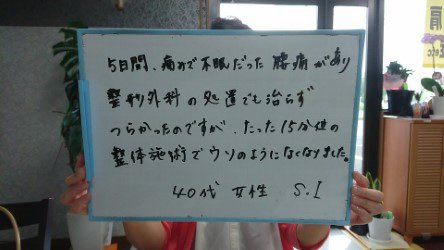 5日間、痛みで不眠だった 腰痛があり
整形外科の処置でも治らず
つらかったのですが、たった15分位の
整体施術でウソのようになくなりました。
40代 女性 S.I
肩